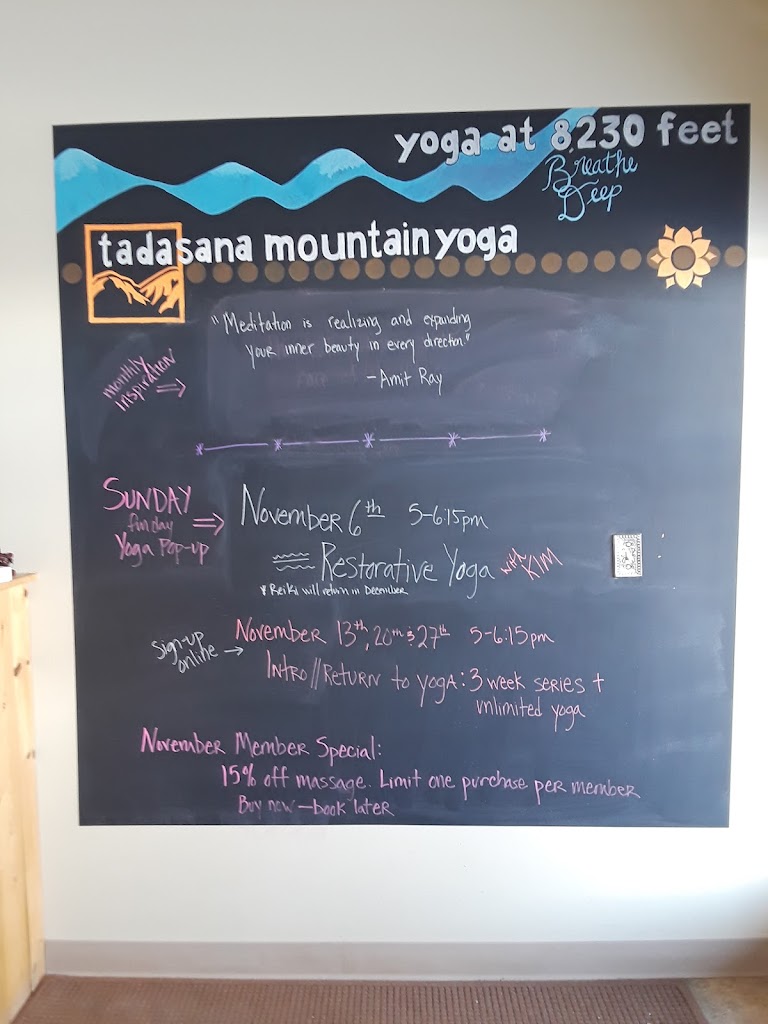 yoga at 8,230 feet
Breathe
Deep
tadasana mountain yoga
"Meditation is realizing and expanding
your inner beauty in every direction."
- Amit Ray
monthly
Inspiration ⇒
SUNDAY
funday
Yoga Pop-up ⇒
November 6th 5-6:15pm
Restorative Yoga with KIM
* Reiki will return in December
Sign-up
online →
November 13th, 20th & 27th 5-6:15pm
Intro//Return to yoga: 3 week series +
unlimited yoga
November Member Special:
15% off massage. Limit one purchase per member
Buy now - book later